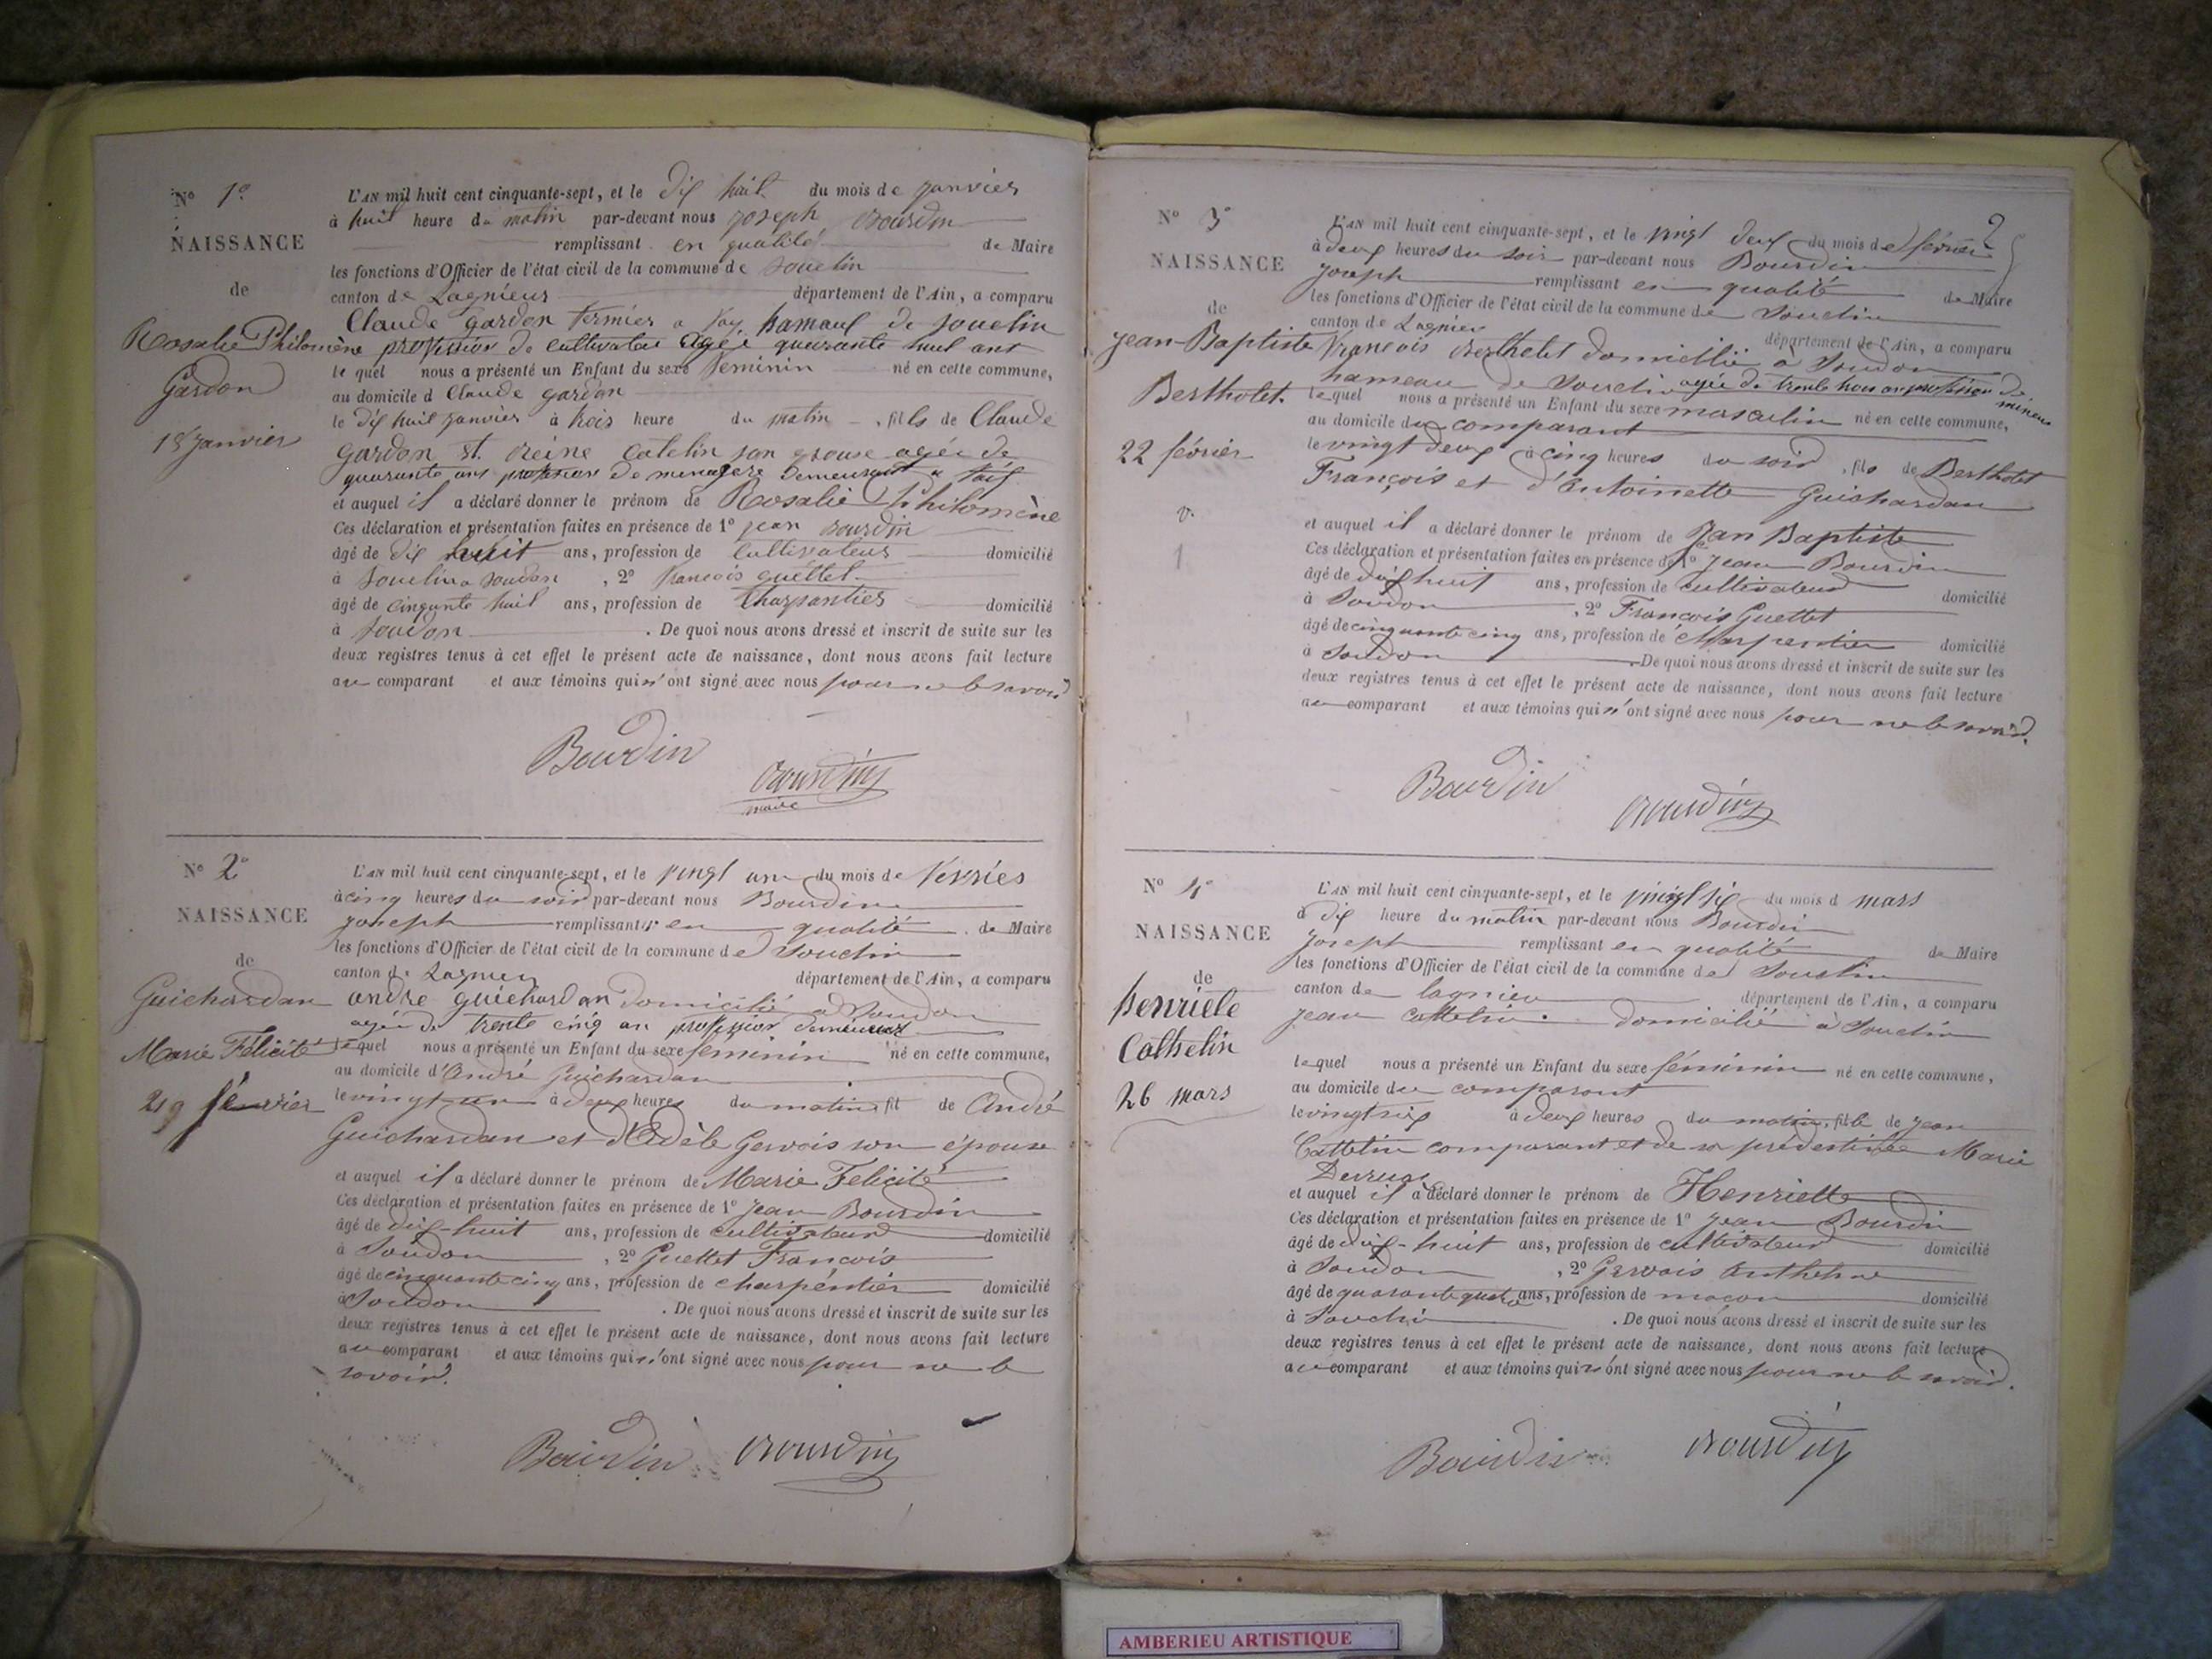 N° 1°
NAISSANCE
de
Rosalie Philomène
Gardon
18 janvier
L'AN mil huit cent cinquante-sept, et le dix huit du mois de janvier
à huit heure du matin par-devant nous joseph Bourdin
remplissant en qualité de Maire
les fonctions d'Officier de l'état civil de la commune de Souclin
canton de Lagnieux département de l'Ain, a comparu
Claude gardon fermier a hamaux de souclin
profession de cultivateur agée quarante huit ans
le quel nous a présenté un Enfant du sexe feminin né en cette commune,
au domicile d Claude gardon
le dix huit janvier à trois heure du matin, fils de Claude
gardon et reine catelin son epouse agée de
quarante ans profession de menagere demeurant a
et auquel il a déclaré donner le prénom de Rosalie Philomène
Ces déclaration et présentation faites en présence de 1° jean Bourdin
âgé de dix huit ans, profession de cultivateur domicilié
à Souclin a soudon, 2° francois guettet
âgé de cinqunte huit ans, profession de charpantier domicilié
à soudon. De quoi nous avons dressé et inscrit de suite sur les
deux registres tenus à cet effet le présent acte de naissance, dont nous avons fait lecture
au comparant et aux témoins qui n'ont signé avec nous pour ne le savoir
Bourdin
Bourdin
maire
N° 2°
NAISSANCE
de
Guichardan
Marie Félicité
21 février
L'AN mil huit cent cinquante-sept, et le vingt un du mois de fevrier
à cinq heures du soir par-devant nous Bourdin
joseph remplissant en qualité de Maire
les fonctions d'Officier de l'état civil de la commune de Souclin
canton de Lagnieu département de l'Ain, a comparu
andre guichardan domicilié a Soudon
agée de trente cinq an profession de mineur
le quel nous a présenté un Enfant du sexe feminin né en cette commune,
au domicile d'André Guichardan
le vingt un à deux heures du matin, fil de André
Guichardan et d'Adèle Gervais son épouse
et auquel il a déclaré donner le prénom de Marie Felicité
Ces déclaration et présentation faites en présence de 1° Jean Bourdin
âgé de dix-huit ans, profession de cultivateur domicilié
à Soudon, 2° Guettet François
âgé de cinquante cinq ans, profession de charpentier domicilié
à Soudon. De quoi nous avons dressé et inscrit de suite sur les
deux registres tenus à cet effet le présent acte de naissance, dont nous avons fait lecture
au comparant et aux témoins qui n'ont signé avec nous pour ne le
savoir.
Bourdin Bourdin
2
N° 3°
NAISSANCE
de
jean-Baptiste
Berthotet.
22 février
L'AN mil huit cent cinquante-sept, et le vingt deux du mois de février
à deux heures du soir par-devant nous Bourdin
joseph remplissant en qualité de Maire
les fonctions d'Officier de l'état civil de la commune de Souclin
canton de Lagnieu département de l'Ain, a comparu
francois Berthelet domicillié à Soudon
hameau de Souclin agée de trente trois an profession de mineur
le quel nous a présenté un Enfant du sexe masculin né en cette commune,
au domicile du comparant
le vingt deux à cinq heures du soir, fils de Berthotet
François et d'Antoinette Guichardan
et auquel il a déclaré donner le prénom de Jean Baptiste
Ces déclaration et présentation faites en présence de 1° Jean Bourdin
âgé de dix huit ans, profession de cultivateur domicilié
à Soudon, 2° François Guettet
âgé de cinquante cinq ans, profession de Charpentier domicilié
à Soudon. De quoi nous avons dressé et inscrit de suite sur les
deux registres tenus à cet effet le présent acte de naissance, dont nous avons fait lecture
au comparant et aux témoins qui n'ont signé avec nous pour ne le savoir.
Bourdin
Bourdin
N° 4°
NAISSANCE
de
henriete
Cathelin
26 mars
L'AN mil huit cent cinquante-sept, et le vingt six du mois d mars
à dix heure du matin par-devant nous Bourdin
joseph remplissant en qualité de Maire
les fonctions d'Officier de l'état civil de la commune de Souclin
canton de lagnieu département de l'Ain, a comparu
jean cattelin. domicilié à Souclin
le quel nous a présenté un Enfant du sexe féminin né en cette commune,
au domicile du comparant
le vingt six à deux heures du matin, fille de jean
Cattelin comparant et de sa prédestinée Marie
et auquel il a déclaré donner le prénom de Henriette
Ces déclaration et présentation faites en présence de 1° Jean Bourdin
âgé de dix-huit ans, profession de cultivateur domicilié
à Soudon, 2° Gervais Anthelme
âgé de quarante quatre ans, profession de maçon domicilié
à Souclin. De quoi nous avons dressé et inscrit de suite sur les
deux registres tenus à cet effet le présent acte de naissance, dont nous avons fait lecture
au comparant et aux témoins qui n'ont signé avec nous pour ne le savoir.
Bourdin Bourdin
AMBERIEU ARTISTIQUE